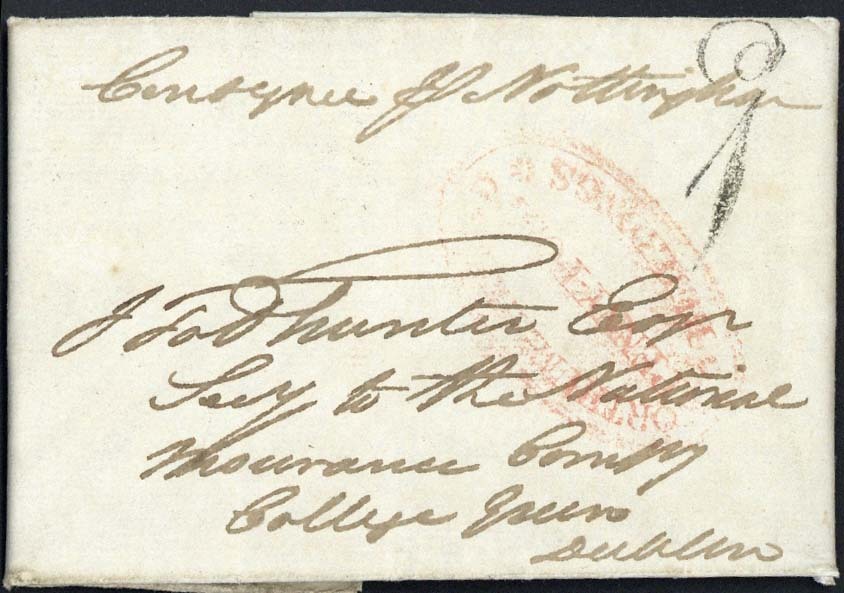 Consignee Nottingham
J Todhunter Esqr
Secy to the National
Insurance Compy
College Green
Dublin